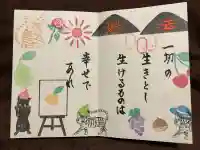 一切の
生きとし
生けるものは
幸せで
あれ